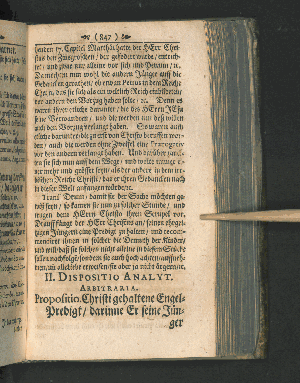 (847)
henden 17. Capitel Matthäi hatte der HErr Chri-
stus den Zinsgroschen / der gefodert wurde / entrich-
tet / und zwar nur alleine vor sich und Petrum / ec.
nun wohl die andern Jünger auf die
Gedancken gerathen / ob etwan Petrus in dem Reiche
Christi, das sie sich als ein weltlich Reich einbildeten /
vor andern den Vorzug haben solte / ec. Denn es
waren ihrer etliche darunter / die des HErrn JEsu
seine Verwandten / und die werden um deß willen
auch den Vorzug verlanget haben. Es waren auch
etliche darunter die zu erst von Christo beruffen wor-
den / auch die werden ohne Zweiffel eine Prærogativ
vor den andern verlanget haben. Und darüber
sie sich nun auf dem Wege / und wolte immer ei-
ner mehr und grösser seyn / als der andere in dem
Reiche Christi / das er ihren Gedancken nach
in dieser Welt anfangen würde.
Transf. Drum / damit sie der Sache möchten ge-
wiß seyn / so kamen sie nun zu solcher Stunde / und
trugen dem HErrn Christo ihren Scrupel vor.
Drauff fänget der HErr Christus an / seinen
Jüngern eine Predigt zu halten / und recom-
mendiret ihnen in solcher die Demuth der Kinder /
und will daß sie solchen nicht alleine in diesem Stücke
sollen nachfolgen / sondern sie auch hoch
men, und alle Liebe erweisen / sie aber ja nicht ärgern / ec.
II. DISPOSITIO ANALYT.
ARBITRARIA.
Propositio. Christi gehaltene Engel-
Predigt / darinne Er seine Jün-
ger